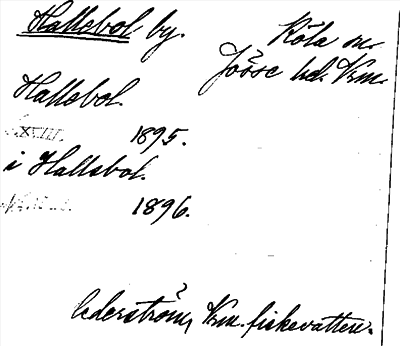 Hallebol by. Köla sn.
Jösse hd. Vrm.
Hallebol.
XVIII. 1895.
i Hallebol.
1896.
Cederström, Vrm. fiskevatten.